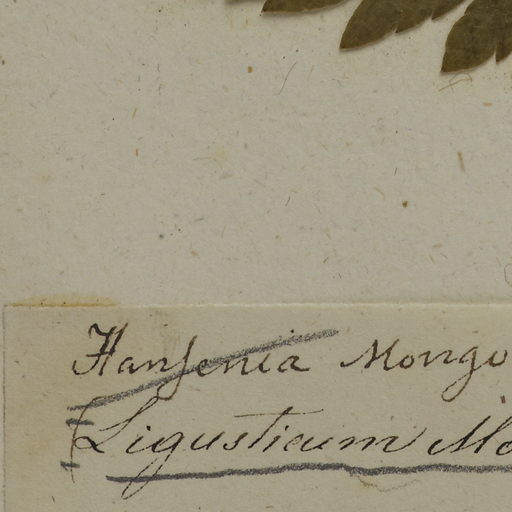 Hansenia Mongo
Ligusticum Mo